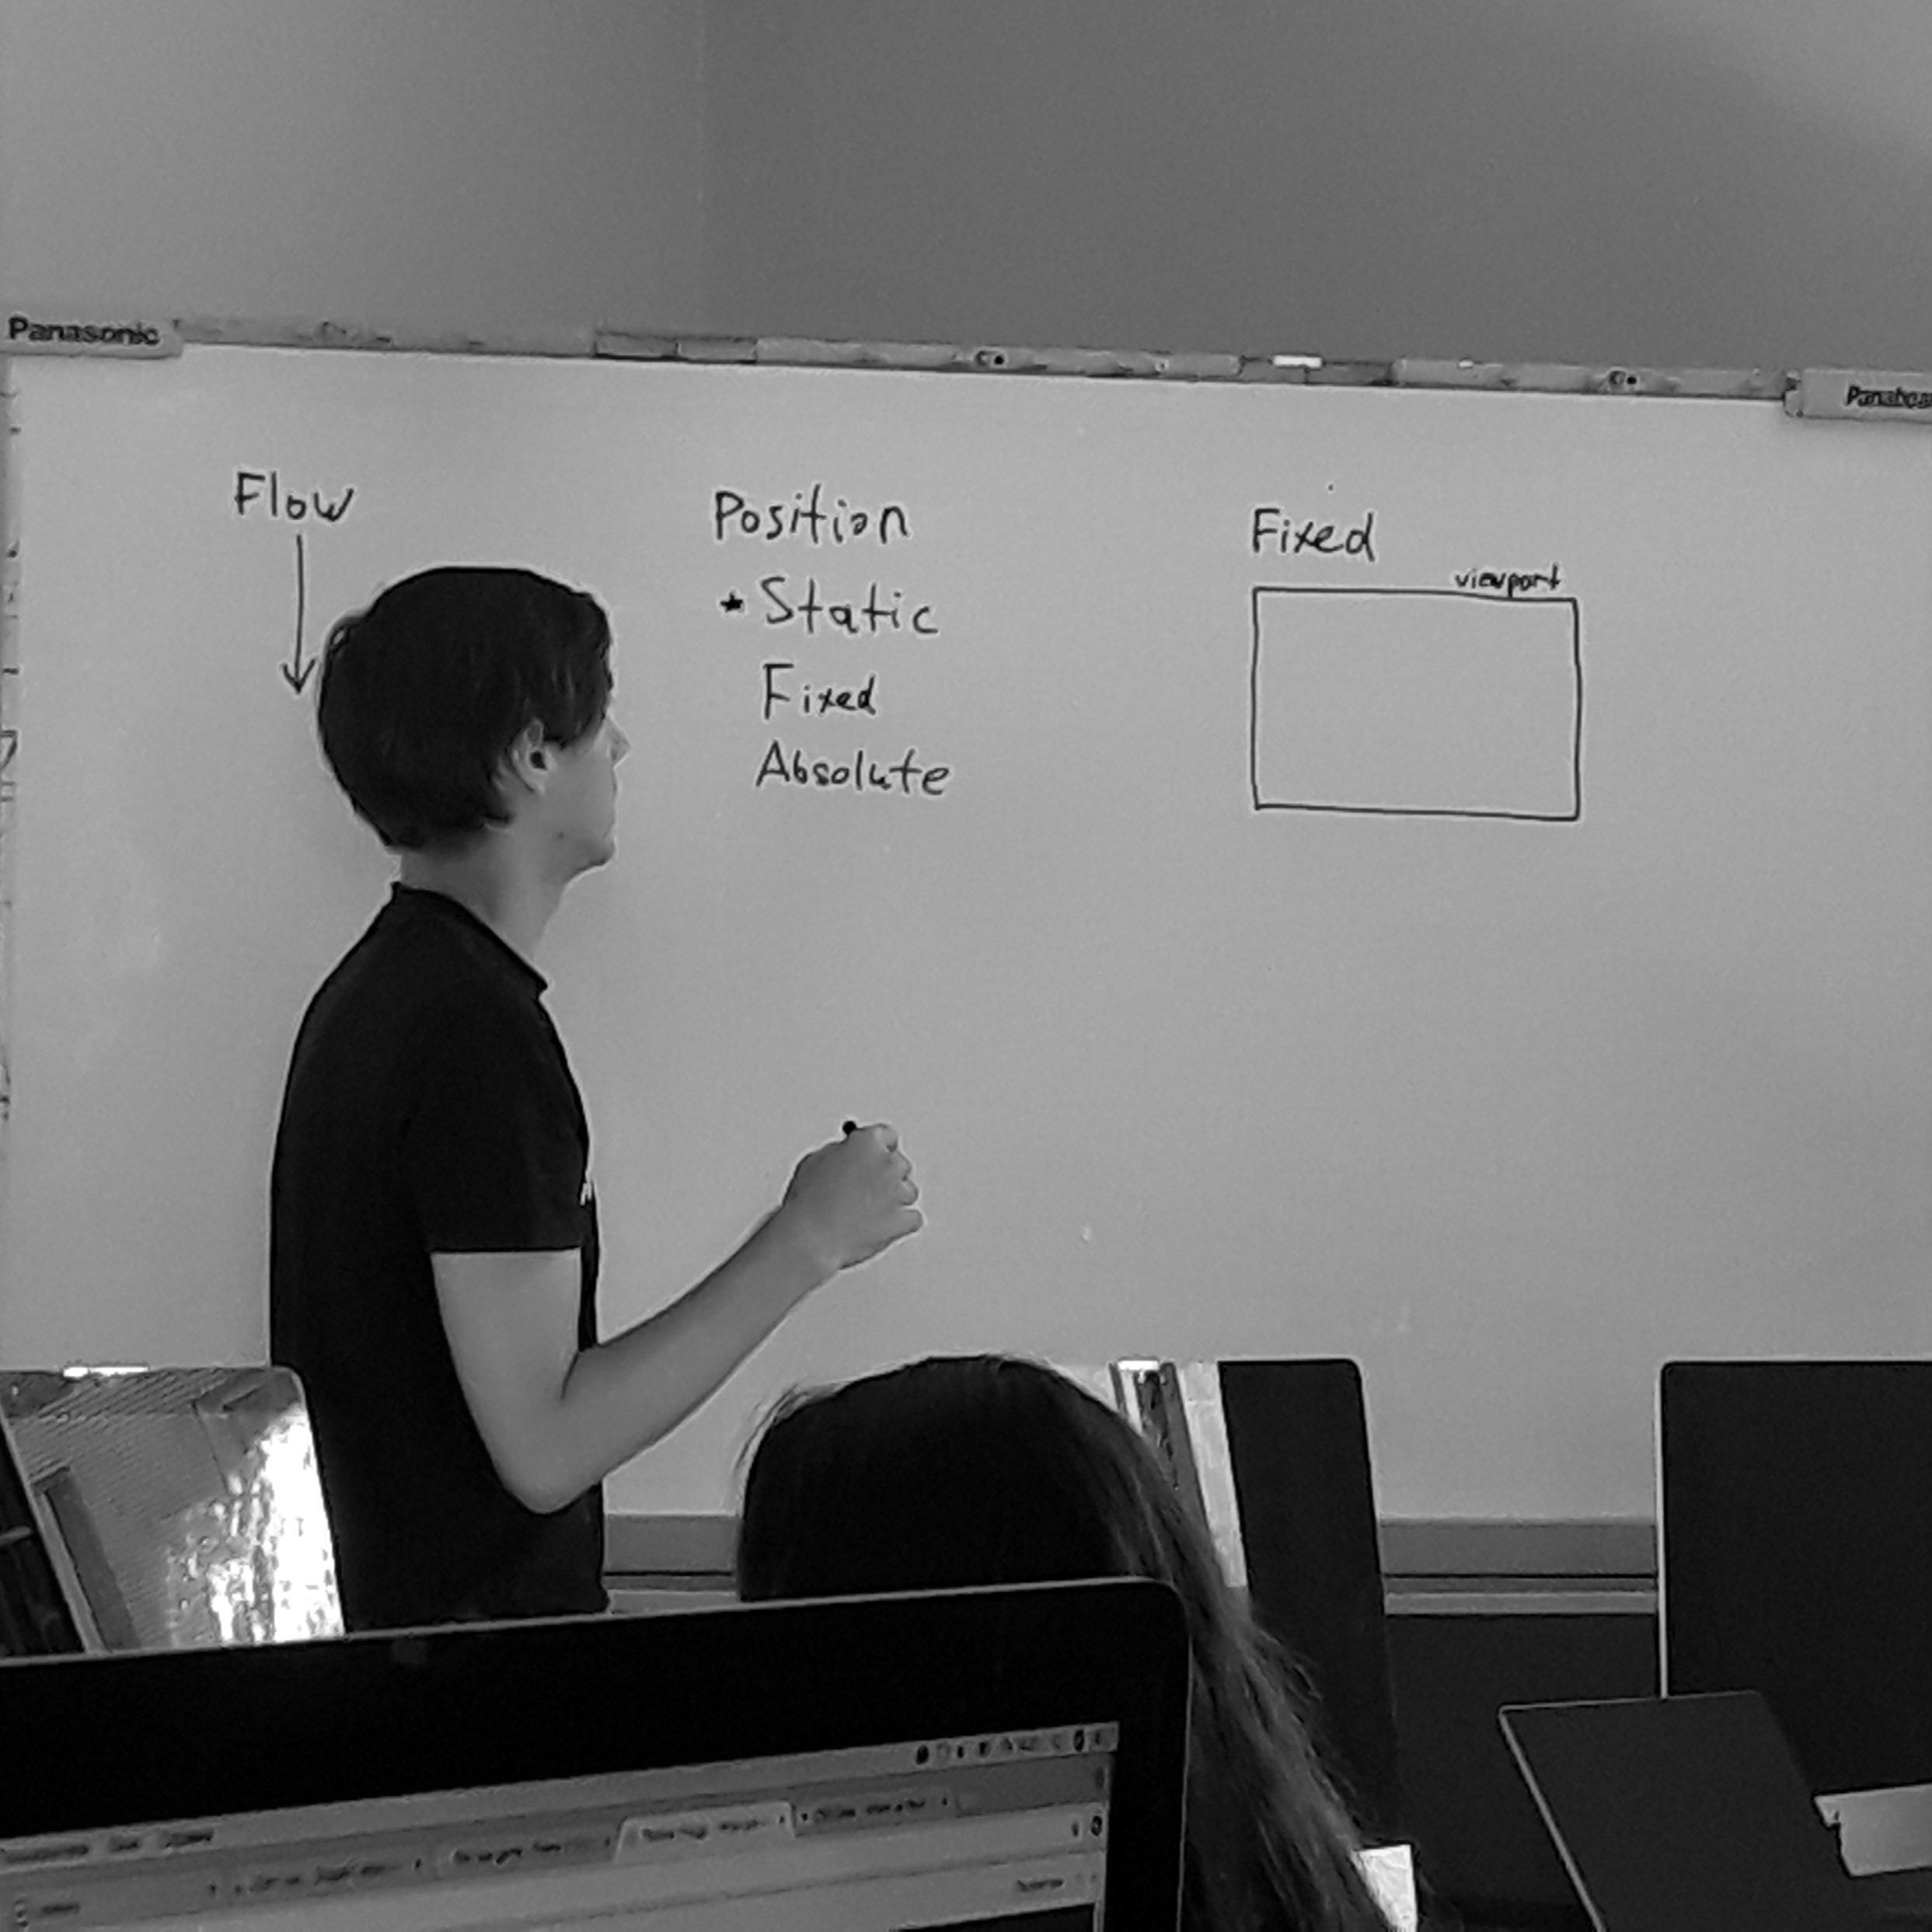 Panasonic
Flow
Position
★ Static
Fixed
Absolute
Fixed
viewport